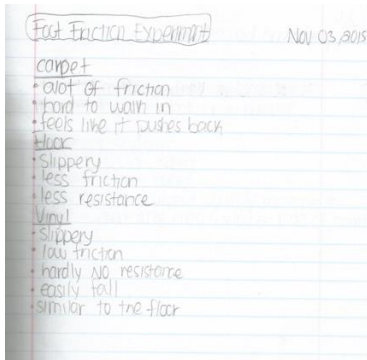 Foot Friction Experiment
Nov 03, 2015
carpet
• alot of friction
• hard to walk in
• feels like it pushes back
Floor
• Slippery
• less friction
• less resistance
Vinyl
• slippery
• low friction
• hardly NO resistance
• easily fall
• similar to the floor